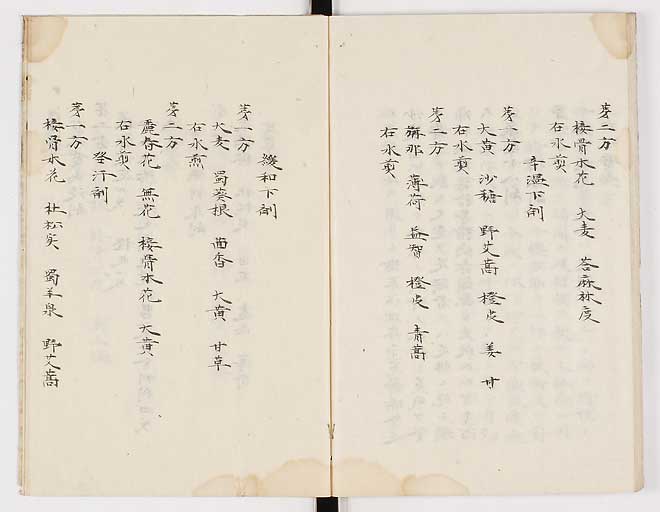 第二方
接骨木花 大麦 荅麻林度
右水煎
辛温下剤
第一方
大黄 沙糖 野艾蒿 橙皮 姜 甘
右水煎
第二方
旃那 薄荷 益智 橙皮 青蒿
右水煎
緩和下剤
第一方
大麦 蜀葵根 茴香 大黄 甘草
右水煎
第二方
麗春花 無花 接骨木花 大黄
右水煎
発汗剤
第一方
接骨木花 杜松实 蜀羊泉 野艾蒿